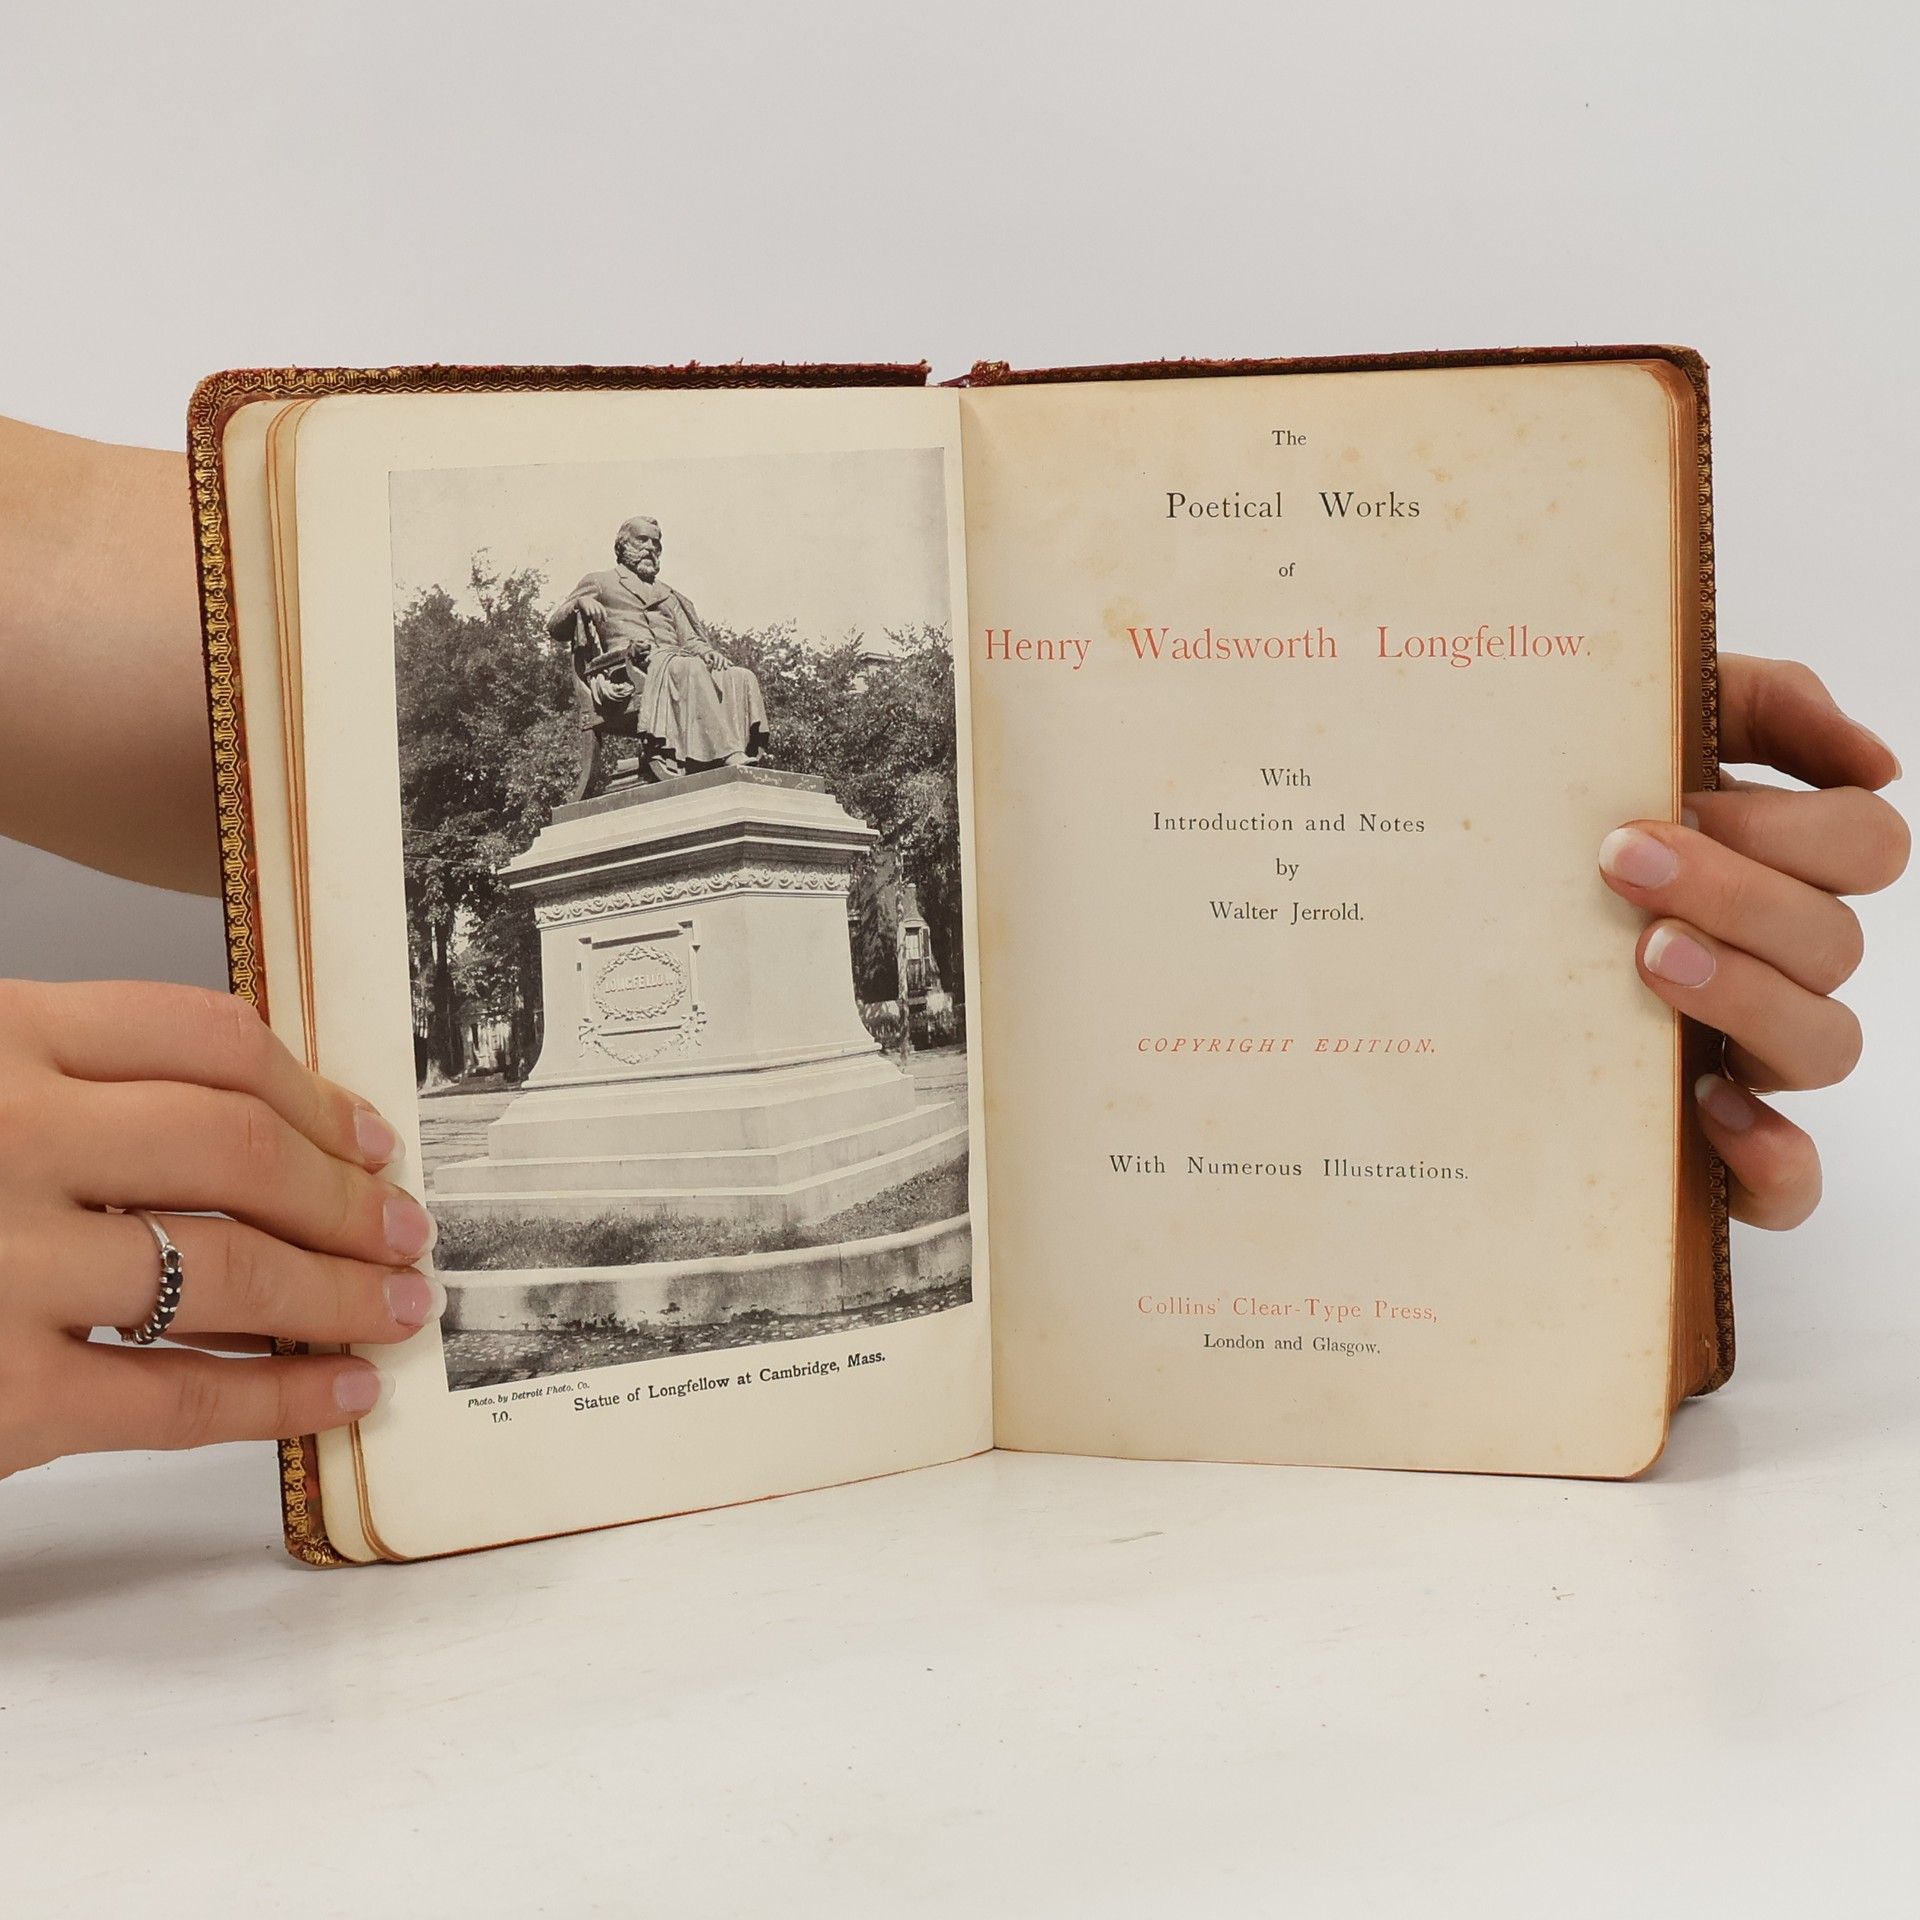 LONGFELLOW
Photo. by Detroit Photo. Co.
LO.
Statue of Longfellow at Cambridge, Mass.
The
Poetical Works
of
Henry Wadsworth Longfellow.
With
Introduction and Notes
by
Walter Jerrold.
COPYRIGHT EDITION.
With Numerous Illustrations.
Collins' Clear-Type Press,
London and Glasgow.